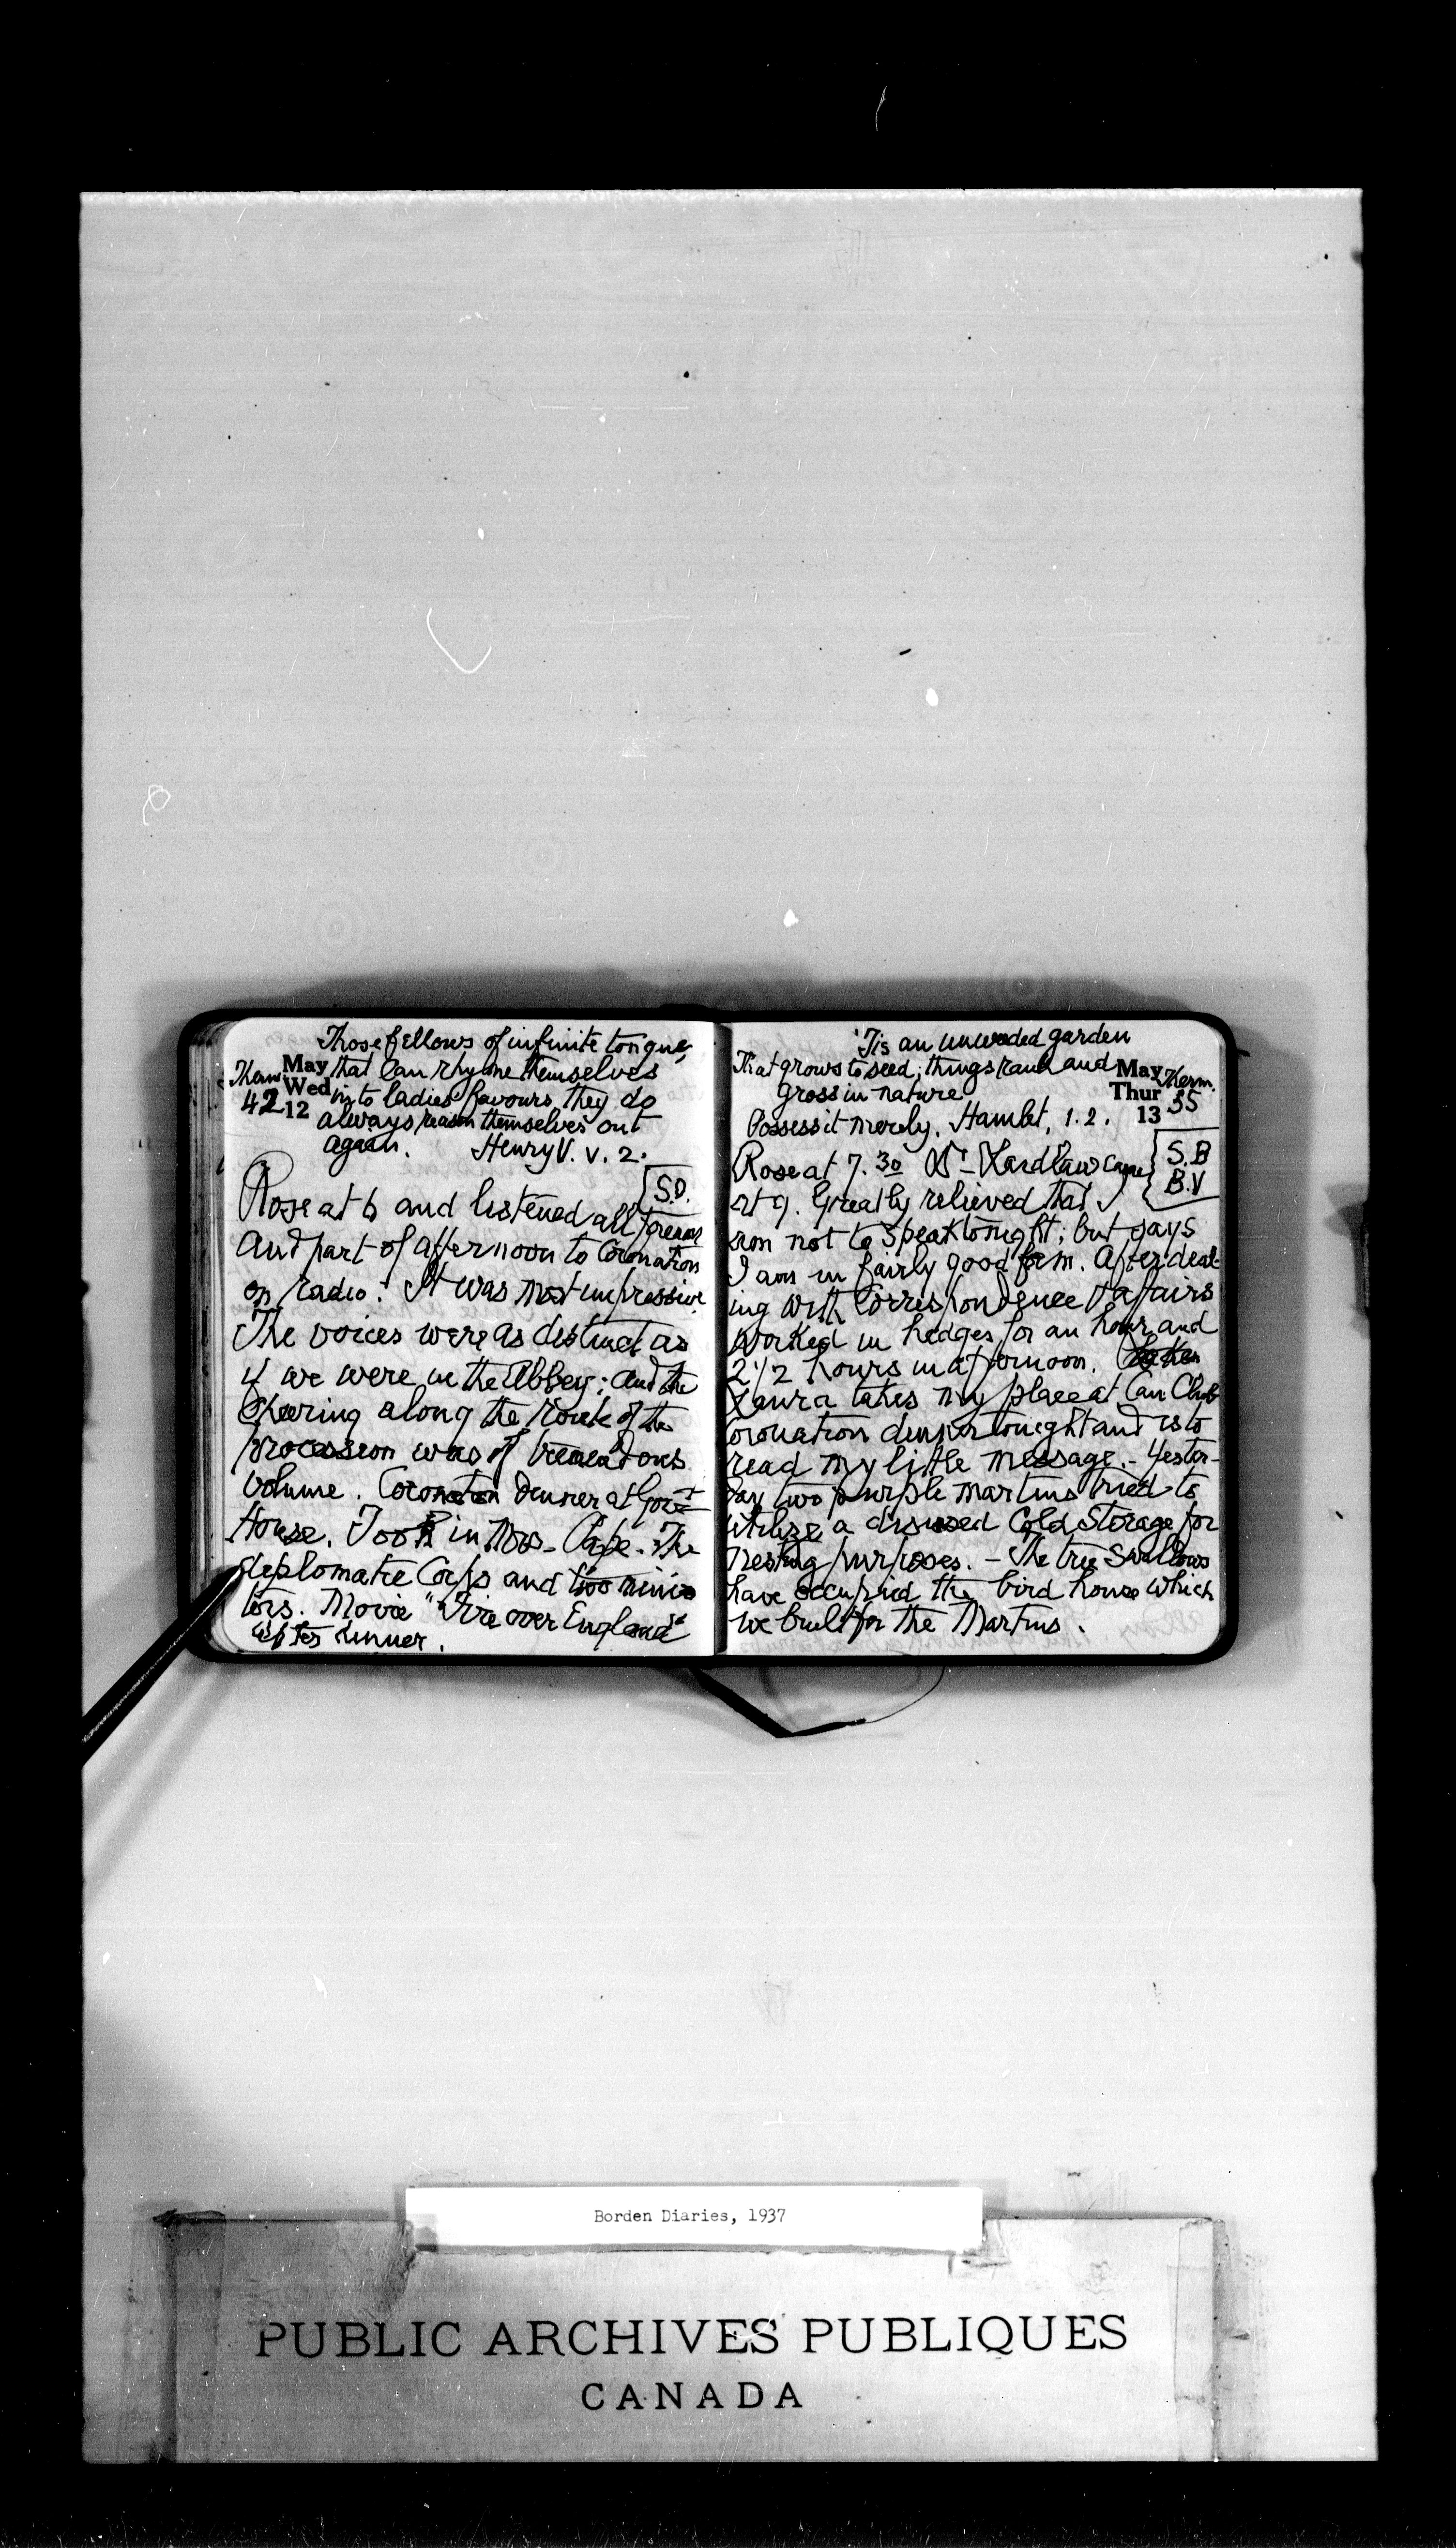 Those fellows of infinite tongue,
that can rhyme themselves
Therm May
Wed in to ladies' favours they do
42 12 always reason themselves out
again. Henry V. V. 2.
S.D.
Rose at 6 and listened all forenoon
and part of afternoon to Coronation
on radio. It was most impressive
The voices were as distinct as
if we were in the Abbey; and the
cheering along the route of the
procession was of tremendous
volume. Coronation dinner at Govt
House. Took in Mrs. Cape. The
diplomatic Corps and two minis
ters. Movie "Fire over England"
after dinner.
'Tis an unweeded garden
That grows to seed; things rank and
gross in nature
Possess it merely. Hamlet, 1.2.
May Therm.
Thur 55
13
S.B
B.V
Rose at 7.30 Dr Laidlaw came
at 9. Greatly relieved that I
am not to speak tonight; but says
I am in fairly good form. After deal-
ing with correspondence & affairs
worked in hedges for an hour and
2 1/2 hours in afternoon.
Laura takes my place at Can. Club
Coronation dinner tonight and is to
read my little message. - Yester-
day two purple martins tried to
utilize a disused Cold Storage for
nesting purposes. - The tree Swallows
have occupied the bird house which
we built for the Martins.
Borden Diaries, 1937
PUBLIC ARCHIVES PUBLIQUES
CANADA